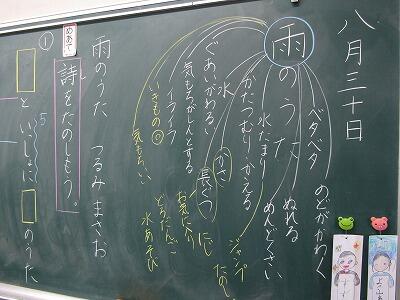 八月三十日
雨のうた
ベタベタ
のどがかわく
ぬれる
めんどくさい
水たまり
ジャンプ
たのしい
かたつむり・かえる
水
かさ
長ぐつ
にじ
お気に入り
ぐあいがわるい
気もちがどんとする
イライラ
いきもの
気もちいい
どろだんご
水あそび
雨のうた　つるみまさお
めあて
詩をたのしもう。
①
といっしょに
のうた